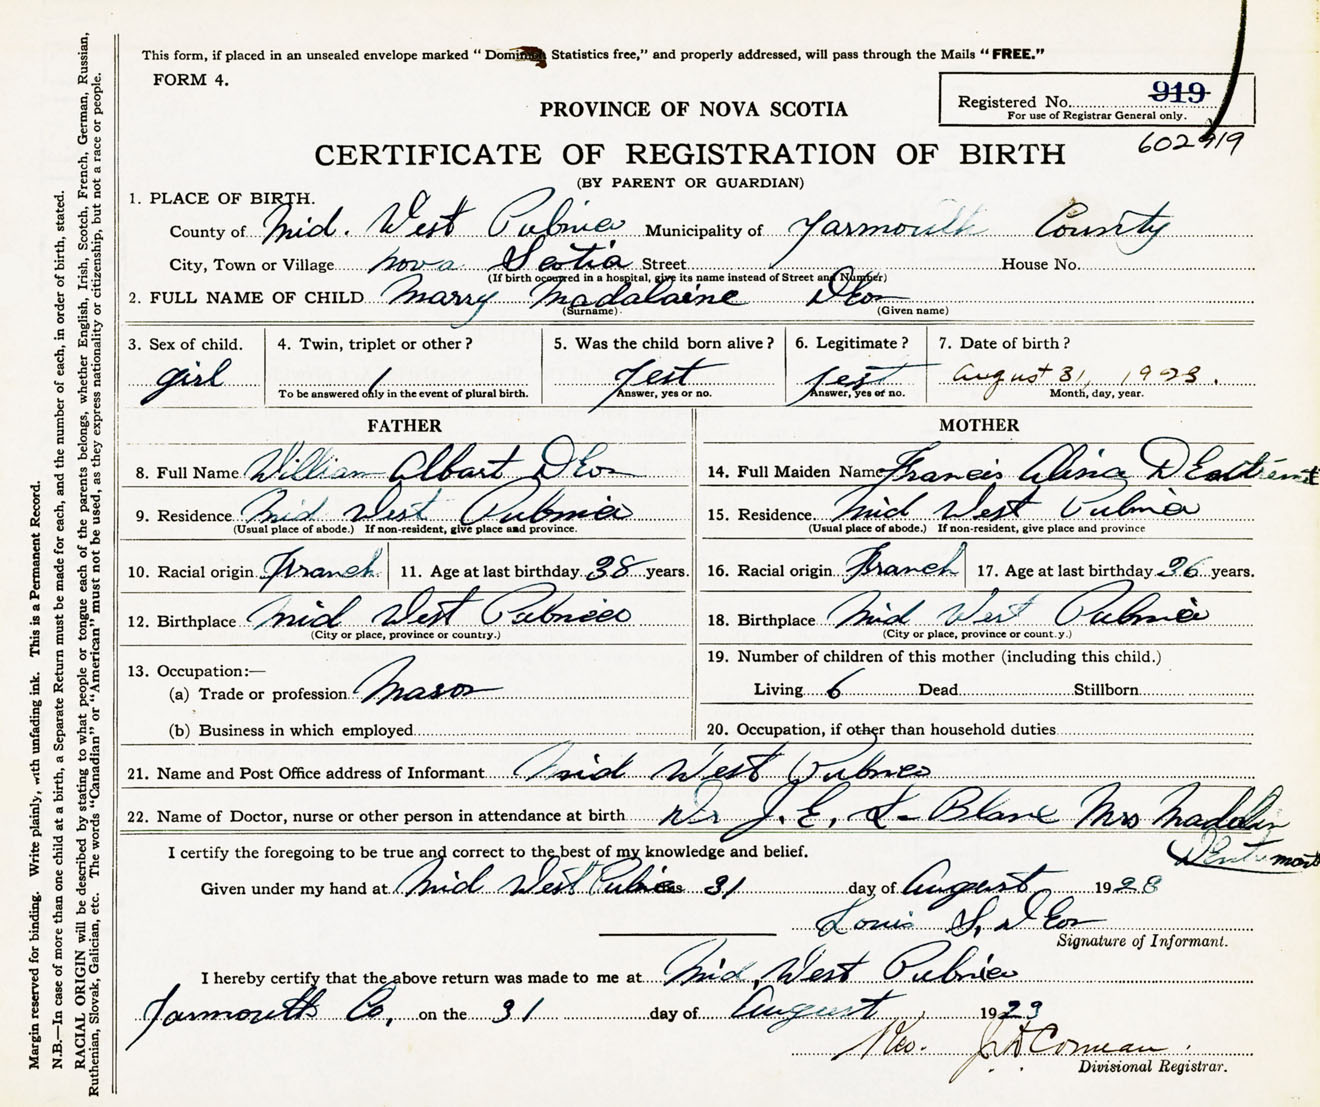 This form, if placed in an unsealed envelope marked "Dominion Statistics free," and properly addressed, will pass through the Mails "FREE."
FORM 4.
PROVINCE OF NOVA SCOTIA
Registered No. 919
For use of Registrar General only.
602919
CERTIFICATE OF REGISTRATION OF BIRTH
(BY PARENT OR GUARDIAN)
1. PLACE OF BIRTH.
County of Mid. West Pubnico Municipality of Yarmouth County
City, Town or Village Nova Scotia Street House No.
(If birth occurred in a hospital, give its name instead of Street and Number)
2. FULL NAME OF CHILD Marry Madalaine DEon
(Surname) (Given name)
3. Sex of child. 4. Twin, triplet or other? 5. Was the child born alive? 6. Legitimate? 7. Date of birth?
girl 1 Yest yest August 31, 1923.
To be answered only in the event of plural birth. Answer, yes or no. Answer, yes or no. Month, day, year.
FATHER MOTHER
8. Full Name William Albart DEon 14. Full Maiden Name Francis Alina DEntremont
9. Residence Mid West Pubnico 15. Residence Mid West Pubnico
(Usual place of abode.) If non-resident, give place and province. (Usual place of abode.) If non-resident, give place and province
10. Racial origin Franch 11. Age at last birthday 38 years. 16. Racial origin Franch 17. Age at last birthday 36 years.
12. Birthplace Mid West Pubnico 18. Birthplace Mid West Pubnico
(City or place, province or country.) (City or place, province or count.y.)
13. Occupation:— 19. Number of children of this mother (including this child.)
(a) Trade or profession Mason Living 6 Dead Stillborn
(b) Business in which employed 20. Occupation, if other than household duties
21. Name and Post Office address of Informant Mid West Pubnico
22. Name of Doctor, nurse or other person in attendance at birth Dr J. E. L- Blanc Mrs Madelin
Dentremont
I certify the foregoing to be true and correct to the best of my knowledge and belief.
Given under my hand at Mid West Pubnico 31 day of August 1923
Louis S. DEon
Signature of Informant.
I hereby certify that the above return was made to me at Mid, West Pubnico
Yarmouth Co, on the 31 day of August 1923
Rev. J. D. Comeau.
Divisional Registrar.
Margin reserved for binding. Write plainly, with unfading ink. This is a Permanent Record.
N.B.—In case of more than one child at a birth, a Separate Return must be made for each, and the number of each, in order of birth, stated.
RACIAL ORIGIN will be described by stating to what people or tongue each of the parents belongs, whether English, Irish, Scotch, French, German, Russian,
Ruthenian, Slovak, Galician, etc. The words "Canadian" or "American" must not be used, as they express nationality or citizenship, but not a race or people.